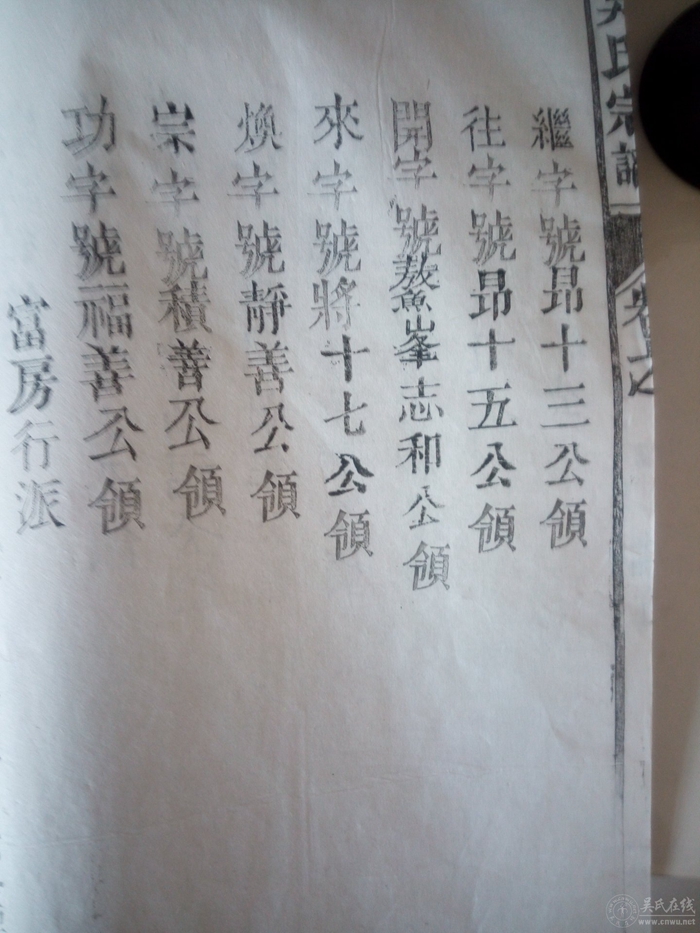 氏宗譜
繼字號昂十三公領
往字號昂十五公領
開字號鼇魚峯志和公領
來字號將十七公領
煥字號靜善公領
崇字號積善公領
功字號福善公領
富房行派
吴氏在线
www.cnwu.net